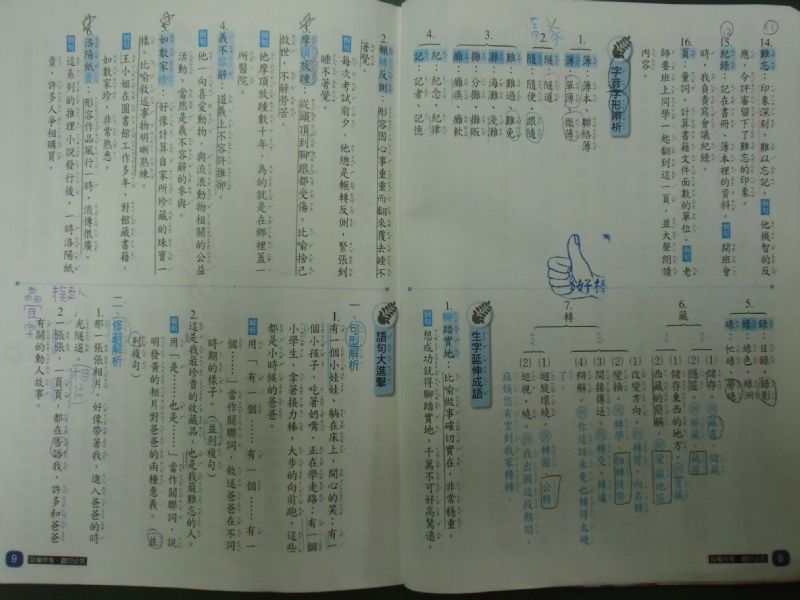 14. 難忘：印象深刻，難以忘記。例句 他機智的反
應，令評審留下了難忘的印象。
15. 紀錄：記在書冊、簿本裡的資料。例句 開班會
時，我負責寫會議紀錄。
16. 頁：量詞。計算書籍文件面數的單位。例句 老
師要班上同學一起翻到這一頁，並大聲朗讀
內容。
字音字形辨析
1. 簿：簿本、聯絡簿
薄：單薄、微薄
2. 隧：隧道
隨：隨便、跟隨
3. 難：難過、難免
灘：海灘、淺灘
攤：分攤、攤販
癱：癱瘓、癱軟
4. 紀：紀念、紀律
記：記者、記憶
5. 錄：目錄、錄影
綠：綠色、綠洲
碌：忙碌
6. 藏
(1) 儲存。
(2) 隱匿。
(1) 儲存東西的地方。
(2) 西藏的簡稱。
7. 轉
(1) 改變方向。例 轉學、向右轉
(2) 變換。
(3) 間接傳送。例 轉交、轉達
(4) 辯解。例 你這話未免也轉得太硬
了。
(1) 迴旋環繞。例 轉圈、公轉
(2) 巡視、繞。例 我出國這段期間，
麻煩您有空到我家轉轉。
生字延伸成語
1. 腳踏實地：比喻做事確切實在，非常穩重。
例句 想成功就得腳踏實地，千萬不可好高騖遠。
8
2. 輾轉反側：形容因心事重重而翻來覆去睡不
著覺。
例句 每次考試前夕，他總是輾轉反側，緊張到
睡不著覺。
3. 摩頂放踵：從頭頂到腳跟都受傷。比喻捨己
救世，不辭勞苦。
例句 他摩頂放踵數十年，為的就是在鄉裡蓋一
所醫院。
4. 義不容辭：道義上不容許推卸。
例句 他一向喜愛動物，與流浪動物相關的公益
活動，當然是義不容辭的參與。
5. 如數家珍：好像計算自家所珍藏的珠寶一
樣。比喻敘述事物明晰熟練。
例句 王小姐在圖書館工作多年，對館藏書籍，
如數家珍，非常熟悉。
6. 洛陽紙貴：形容作品風行一時，流傳很廣。
例句 這系列的推理小說發行後，一時洛陽紙
貴，許多人爭相購買。
語句大進擊
一、句型解析
1. 有一個小娃娃，躺在床上，開心的笑；有一
個小孩子，吃著奶嘴，正在學走路；有一個
小學生，拿著接力棒，大步的向前跑，這些
都是小時候的爸爸。
解析 用「有一個……有一個……有一
個……」當作關聯詞，敘述爸爸在不同
時期的樣子。（並列複句）
2. 這是我最珍貴的收藏品，也是我最難忘的人。
解析 用「是……也是……」當作關聯詞，說
明發黃的相片對爸爸的兩種意義。（並
列複句）
二、修辭解析
1. 那一張張相片，好像帶著我，進入爸爸的時
光隧道。
2. 一張張、一頁頁，都在告訴我，許多和爸爸
有關的動人故事。
9